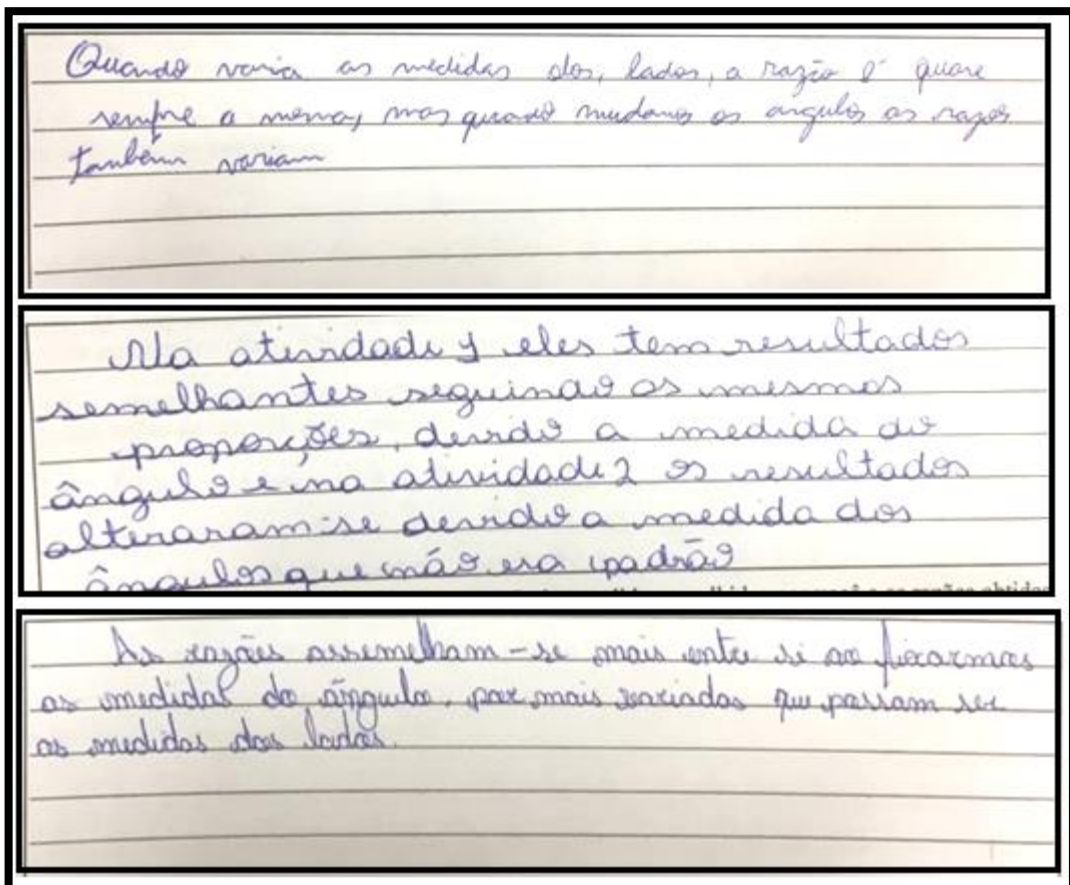 Quando varia as medidas dos, lados, a razão é quase
sempre a mesma, mas quando mudamos os angulos as razões
também variam
Na atividade 1 eles tem resultados
semelhantes seguindo as mesmas
proporções, devido a medida do
ângulo e na atividade 2 os resultados
alteraram-se devido a medida dos
ângulos que não era padrão
As razões assemelham-se mais entre si ao fixarmos
as medidas do ângulo, por mais variadas que possam ser
as medidas dos lados.